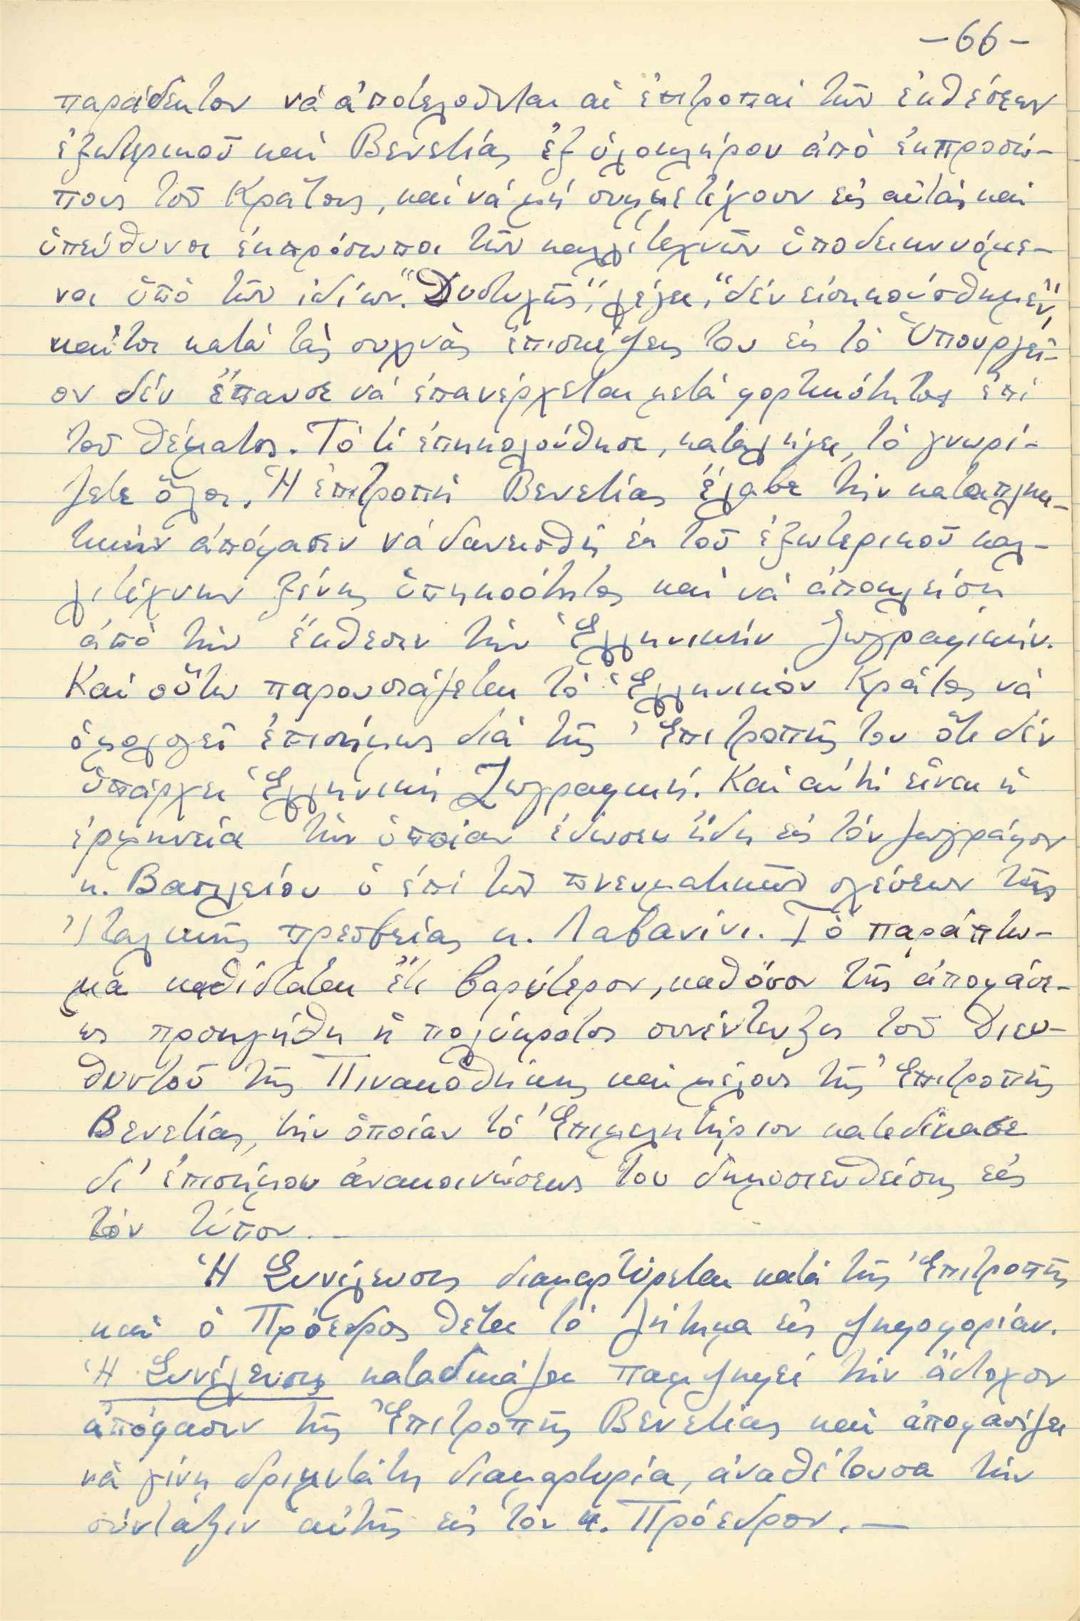 -66-
παράδεκτον νά ἀποτελοῦνται αἱ ἐπιτροπαί τῶν ἐκθέσεων
ἐξωτερικοῦ καί Βενετίας ἐξ ὁλοκλήρου ἀπό ἐκπροσώ-
πους τοῦ Κράτους, καί νά μή συμμετέχουν εἰς αὐτάς καί
ὑπεύθυνοι ἐκπρόσωποι τῶν καλλιτεχνῶν ὑποδεικνυόμε-
νοι ὑπό τῶν ἰδίων. "Δυστυχῶς", λέγει, "δέν εἰσηκούσθημεν",
καίτοι κατά τάς συχνάς ἐπισκέψεις του εἰς τό Ὑπουργεῖ-
ον δέν ἔπαυσε νά ἐπανέρχεται μετά φορτικότητος ἐπί
τοῦ θέματος. Τό τί ἐπηκολούθησε, καταλήγει, τό γνωρί-
ζετε ὅλοι. Ἡ ἐπιτροπή Βενετίας ἔλαβε τήν καταπλη-
κτικήν ἀπόφασιν νά δανεισθῇ ἐκ τοῦ ἐξωτερικοῦ καλ-
λιτέχνην ξένης ὑπηκοότητος καί νά ἀποκλείσῃ
ἀπό τήν ἔκθεσιν τήν Ἑλληνικήν ζωγραφικήν.
Καί οὕτω παρουσιάζεται τό Ἑλληνικόν Κράτος νά
ὁμολογεῖ ἐπισήμως διά τῆς Ἐπιτροπῆς του ὅτι δέν
ὑπάρχει Ἑλληνική Ζωγραφική. Καί αὐτή εἶναι ἡ
ἑρμηνεία τήν ὁποίαν ἔδωσεν ἤδη εἰς τόν ζωγράφον
κ. Βασιλείου ὁ ἐπί τῶν πνευματικῶν σχέσεων τῆς
Ἰταλικῆς πρεσβείας κ. Λαβανίνι. Τό παράπτω-
μα καθίσταται ἔτι βαρύτερον, καθόσον τῆς ἀποφάσε-
ως προηγήθη ἡ πολύκροτος συνέντευξις τοῦ Διευ-
θυντοῦ τῆς Πινακοθήκης καί μέλους τῆς Ἐπιτροπῆς
Βενετίας, τήν ὁποίαν τό Ἐπιμελητήριον κατεδίκασε
δι' ἐπισήμου ἀνακοινώσεώς του δημοσιευθείσης εἰς
τόν τύπον.-
Ἡ Συνέλευσις διαμαρτύρεται κατά τῆς Ἐπιτροπῆς
καί ὁ Πρόεδρος θέτει τό ζήτημα εἰς ψηφοφορίαν.
Ἡ Συνέλευσις καταδικάζει παμψηφεί τήν ἄστοχον
ἀπόφασιν τῆς Ἐπιτροπῆς Βενετίας καί ἀποφασίζει
νά γίνῃ δριμυτάτη διαμαρτυρία, ἀναθέτουσα τήν
σύνταξιν αὐτῆς εἰς τόν κ. Πρόεδρον.-